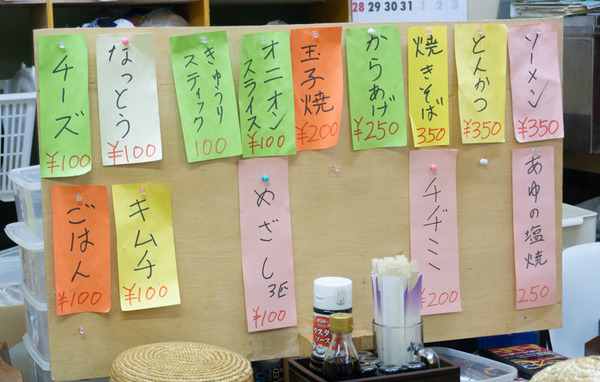 28 29 30 31
チーズ
¥100
なっとう
¥100
きゅうり
スティック
100
オニオン
スライス
¥100
玉子焼
¥200
からあげ
¥250
焼きそば
350
とんかつ
¥350
ソーメン
¥350
ごはん
¥100
キムチ
¥100
めざし
3匹
¥100
チヂミ
¥200
あゆの塩焼
250
ソース